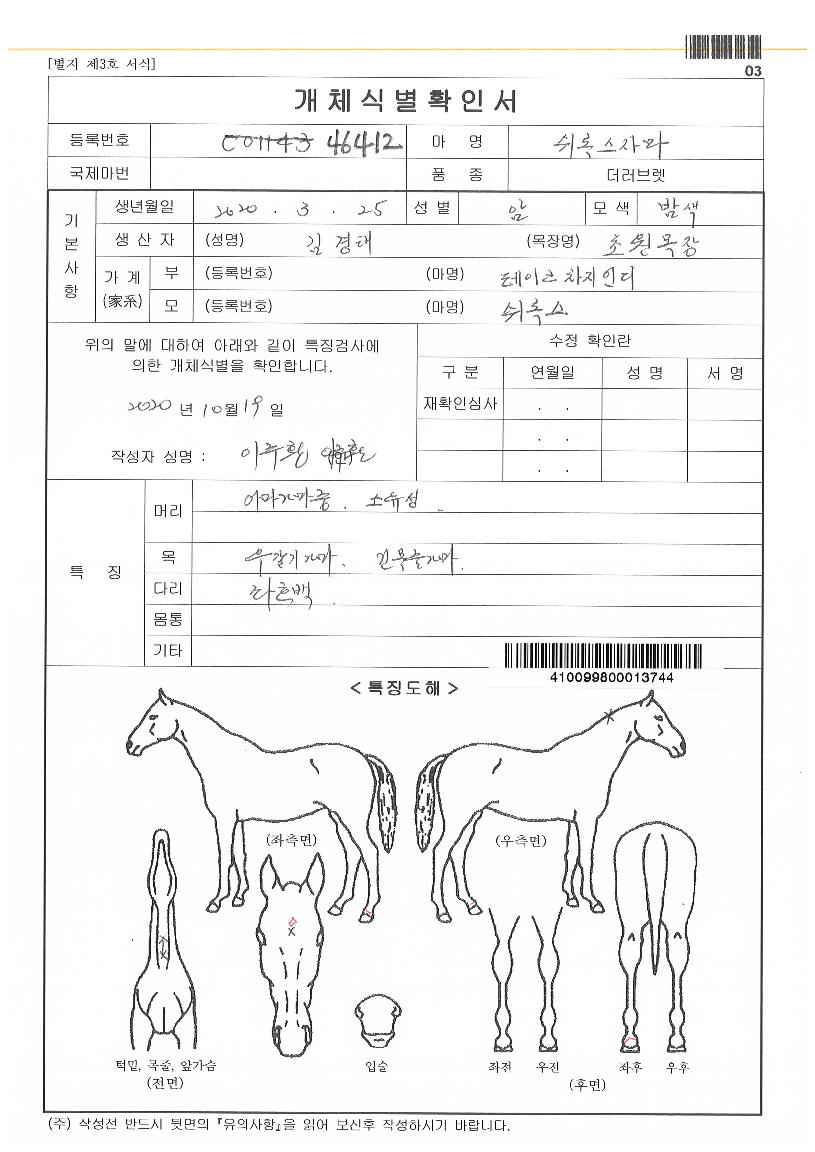 03
[별지 제3호 서식]
개체식별확인서
등록번호 C01143 46412 마 명 쉬록스사파
국제마번 품 종 더러브렛
기본사항
생년월일 2020 . 3 . 25 성별 암 모색 밤색
생산자 (성명) 김경태 (목장명) 초원목장
가계(家系) 부 (등록번호) (마명) 테이크차지인디
모 (등록번호) (마명) 쉬록스
위의 말에 대하여 아래와 같이 특징검사에
의한 개체식별을 확인합니다.
2020 년 10월 19 일
작성자 성명 :
수정 확인란
구분 연월일 성명 서명
재확인심사 . .
. .
. .
특 징
머리 이마가마중 . 소유성
목 우갈기가마 . 긴목줄가마.
다리 좌흔백 .
몸통
기타
410099800013744
< 특징도해 >
(좌측면) (우측면)
턱밑, 목줄, 앞가슴
(전면)
입술
좌전 우진 좌후 우후
(후면)
(주) 작성전 반드시 뒷면의 『유의사항』을 읽어 보신후 작성하시기 바랍니다.